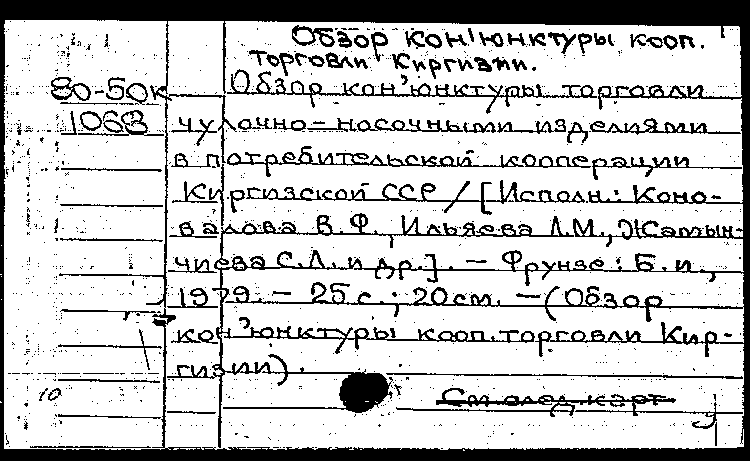 Обзор кон'юнктуры кооп.
торговли Киргизии.
80-50к Обзор кон'юнктуры торговли
1068 чулочно-носочными изделиями
в потребительской кооперации
Киргизской ССР / [Исполн.: Коно-
валова В.Ф., Ильяева Л.М., Жамын-
чиева С.Л. и др.]. - Фрунзе: Б.и.,
1979. - 25 с.; 20 см. - (Обзор
кон'юнктуры кооп. торговли Кир-
гизии).
10
См след карт